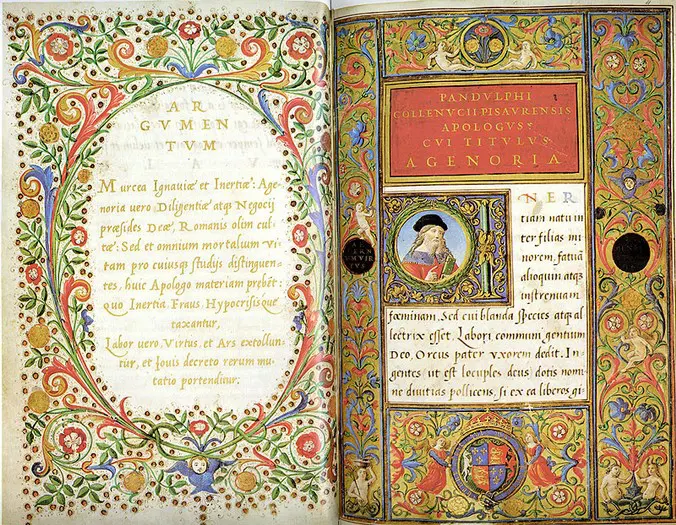 AR
GVMEN
TVM
Murcea Ignauiæ et Inertiæ: Age-
noria vero Diligentiæ atqȝ Negocij
præsides Deæ, Romanis olim cul-
tæ: Sed et omnium mortalium Vi-
tam pro cuiusqȝ studijs distinguen-
tes, huic Apologo materiam prebẽt:
quo Inertia, Fraus, Hypocrisisque
taxantur,
Labor uero, Virtus, et Ars extollun-
tur, et Iouis decreto rerum mu-
tatio portenditur:
PANDVLPHI
COLLENVCII PISAVRENSIS
APOLOGVS
CVI TITVLVS
AGENORIA
INER
tiam natu in
ter filias mi
norem, fatuã
alioquin atqȝ
instreniam
fœminam, Sed cui blanda species atqȝ al
lectrix esset, Labori communi gentium
Deo, Orcus pater Vxorem dedit. In-
gentes ut est locuples deus dotis nomi
ne diuitias pollicens, si ex ea liberos gi